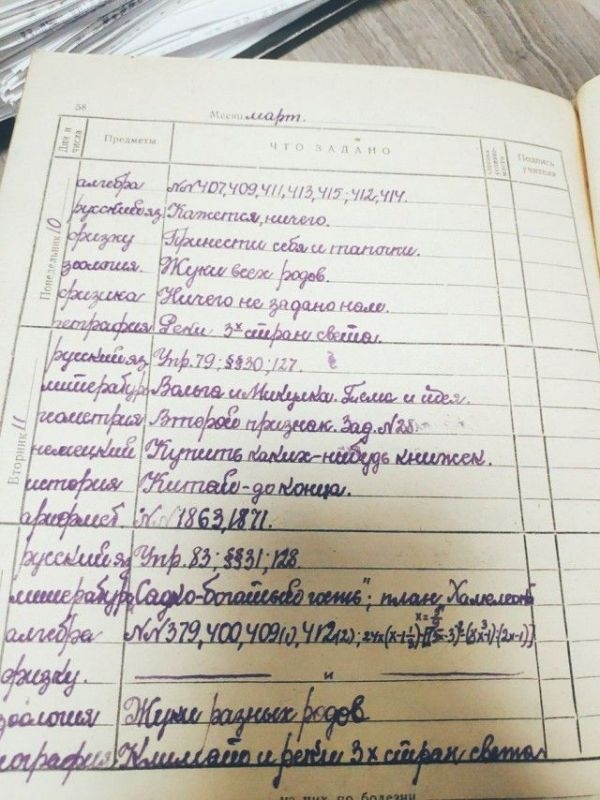 58
Месяц март.
Дни и числа Предметы ЧТО ЗАДАНО Подпись учителя
Понедельник 10
алгебра №№407,409,411,413,415; 412,414.
русский яз Кажется, ничего.
физку Принести себя и тапочки.
зоология. Жуки всех родов.
физика Ничего не задано нам.
география Реки 3х стран света.
Вторник 11
русский яз Упр. 79; §§30; 127.
литератур Вольга и Микулка. Тема и идея.
геометрия Второй признак. Зад. №28
немецкий Купить каких-нибудь книжек.
история Китай - до конца.
арифмет. №№1863, 1871.
русский яз Упр. 83; §§31, 128.
литератур "Садко-богатый гость"; план Хамелеона
алгебра №№379,400,409(1),412(2);
физку. и
зоология Жуки разных родов
география Климат и реки 3х стран света